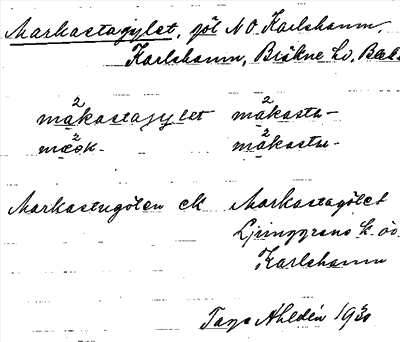 Markastagylet, göl N O. Karlshamn,
Karlshamn, Bräkne hd, Blek.
2 måkastagylet 2 måkasta-
2 mæok- 2 måkastu-
Markastugölen ek Markastagölet
Ljunggrens k. öv.
Karlshamn
Taga Ahldén 1930